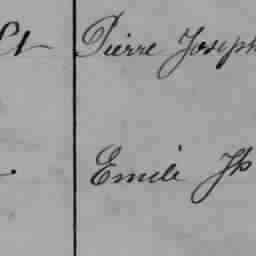 et Pierre Joseph
Emile Jh